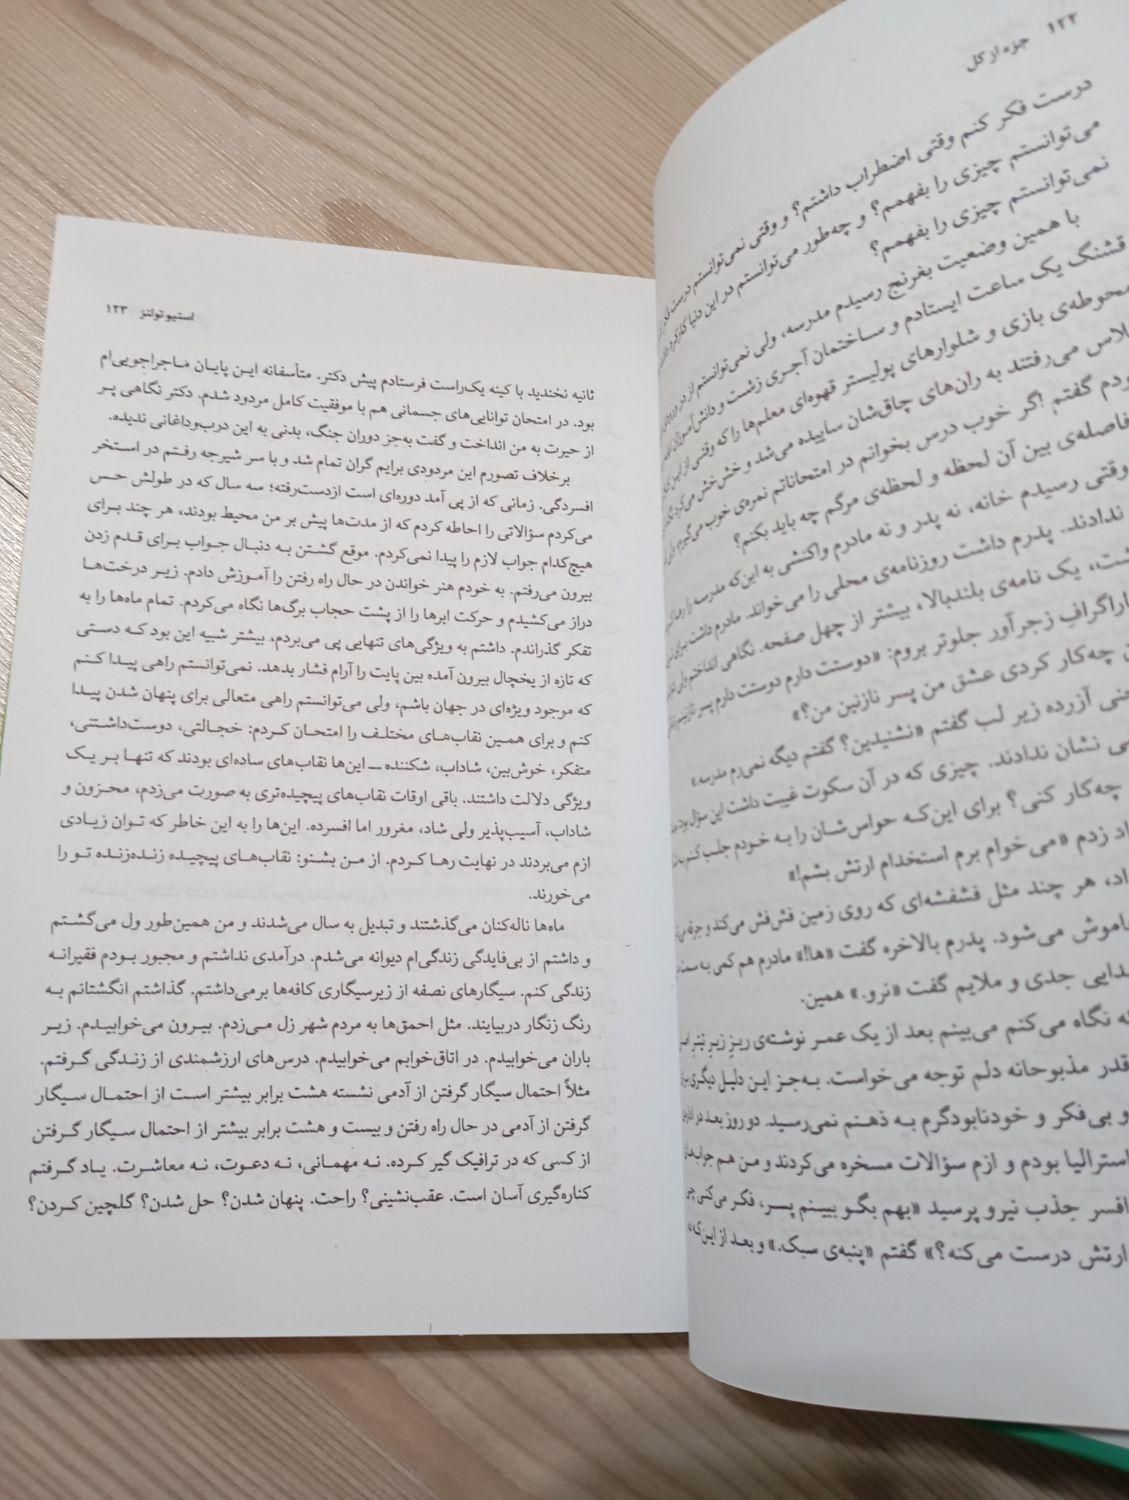 ۱۲۲ جزء از کل
درست فکر کنم وقتی اضطراب داشتم؟ و وقتی نمی‌توانستم درست فکر
می‌توانستم چیزی را بفهمم؟ و چه‌طور می‌توانستم در این دنیا کارکرد
نمی‌توانستم چیزی را بفهمم؟
با همین وضعیت بغرنج رسیدم مدرسه، ولی نمی‌توانستم از در
قشنگ یک ساعت ایستادم و ساختمان آجری زشت و دانش‌آموزان
محوطه‌ی بازی و شلوارهای پولیستر قهوه‌ای معلم‌ها را که وقتی از این
می‌رفتند به ران‌های چاق‌شان ساییده می‌شد و خش‌خش می‌کرد
گفتم اگر خوب درس بخوانم در امتحاناتم نمره‌ی خوب می‌گیرم
فاصله‌ی بین آن لحظه و لحظه‌ی مرگم چه باید بکنم؟
وقتی رسیدم خانه، نه پدر و نه مادرم واکنشی به این‌که مدرسه را
ندادند. پدرم داشت روزنامه‌ی محلی را می‌خواند. مادرم داشت برای
یک نامه‌ی بلندبالا، بیشتر از چهل صفحه. نگاهی انداختم ولی
زجرآور جلوتر بروم: «دوستت دارم دوستت دارم پسر نازنینم
چه‌کار کردی عشق من پسر نازنین من؟»
آزرده زیر لب گفتم «نشنیدین؟ گفتم دیگه نمی‌رم مدرسه.»
نشان ندادند. چیزی که در آن سکوت غیبت داشت این سؤال بود
چه‌کار کنی؟ برای این‌که حواس‌شان را به خودم جلب کنم
زدم «می‌خوام برم استخدام ارتش بشم!»
هر چند مثل فشفشه‌ای که روی زمین فش‌فش می‌کند و جرقه
می‌شود. پدرم بالاخره گفت «ها!» مادرم هم کمی به سمت
جدی و ملایم گفت «نرو.» همین.
نگاه می‌کنم می‌بینم بعد از یک عمر نوشته‌ی ریز زیر تیتر
قدر مذبوحانه دلم توجه می‌خواست. به‌جز این دلیل دیگری
و بی‌فکر و خودنابودگرم به ذهنم نمی‌رسید. دو روز بعد در
استرالیا بودم و ازم سؤالات مسخره می‌کردند و من هم
افسر جذب نیرو پرسید «بهم بگو ببینم پسر، فکر می‌کنی چی
ارتش درست می‌کنه؟» گفتم «پنبه‌ی سبک.» و بعد از این‌که
استیو تولتز ۱۲۳
ثانیه نخندید با کینه یک‌راست فرستادم پیش دکتر. متأسفانه این پایان ماجراجویی‌ام
بود. در امتحان توانایی‌های جسمانی هم با موفقیت کامل مردود شدم. دکتر نگاهی پر
از حیرت به من انداخت و گفت به‌جز دوران جنگ، بدنی به این درب‌وداغانی ندیده.
برخلاف تصورم این مردودی برایم گران تمام شد و با سر شیرجه رفتم در استخر
افسردگی. زمانی که از پی آمد دوره‌ای است ازدست‌رفته؛ سه سال که در طولش حس
می‌کردم سؤالاتی را احاطه کردم که از مدت‌ها پیش بر من محیط بودند، هر چند برای
هیچ‌کدام جواب لازم را پیدا نمی‌کردم. موقع گشتن به دنبال جواب برای قدم زدن
بیرون می‌رفتم. به خودم هنر خواندن در حال راه رفتن را آموزش دادم. زیر درخت‌ها
دراز می‌کشیدم و حرکت ابرها را از پشت حجاب برگ‌ها نگاه می‌کردم. تمام ماه‌ها را به
تفکر گذراندم. داشتم به ویژگی‌های تنهایی پی می‌بردم، بیشتر شبیه این بود که دستی
که تازه از یخچال بیرون آمده بین پایت را آرام فشار بدهد. نمی‌توانستم راهی پیدا کنم
که موجود ویژه‌ای در جهان باشم، ولی می‌توانستم راهی متعالی برای پنهان شدن پیدا
کنم و برای همین نقاب‌های مختلف را امتحان کردم: خجالتی، دوست‌داشتنی،
متفکر، خوش‌بین، شاداب، شکننده ـــ این‌ها نقاب‌های ساده‌ای بودند که تنها بر یک
ویژگی دلالت داشتند. باقی اوقات نقاب‌های پیچیده‌تری به صورت می‌زدم، محزون و
شاداب، آسیب‌پذیر ولی شاد، مغرور اما افسرده. این‌ها را به این خاطر که توان زیادی
ازم می‌بردند در نهایت رها کردم. از من بشنو: نقاب‌های پیچیده زنده‌زنده تو را
می‌خورند.
ماه‌ها ناله‌کنان می‌گذشتند و تبدیل به سال می‌شدند و من همین‌طور ول می‌گشتم
و داشتم از بی‌فایدگی زندگی‌ام دیوانه می‌شدم. درآمدی نداشتم و مجبور بودم فقیرانه
زندگی کنم. سیگارهای نصفه از زیرسیگاری کافه‌ها برمی‌داشتم. گذاشتم انگشتانم به
رنگ زنگار دربیایند. مثل احمق‌ها به مردم شهر زل می‌زدم. بیرون می‌خوابیدم. زیر
باران می‌خوابیدم. در اتاق‌خوابم می‌خوابیدم. درس‌های ارزشمندی از زندگی گرفتم.
مثلاً احتمال سیگار گرفتن از آدمی نشسته هشت برابر بیشتر است از احتمال سیگار
گرفتن از آدمی در حال راه رفتن و بیست و هشت برابر بیشتر از احتمال سیگار گرفتن
از کسی که در ترافیک گیر کرده. نه مهمانی، نه دعوت، نه معاشرت. یاد گرفتم
کناره‌گیری آسان است. عقب‌نشینی؟ راحت. پنهان شدن؟ حل شدن؟ گلچین کردن؟